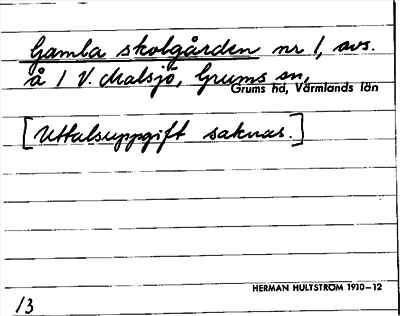 Gamla skolgården nr 1, avs.
å 1 V. Malsjö, Grums sn,
Grums hd, Värmlands län
[Uttalsuppgift saknas.]
HERMAN HULTSTRÖM 1910–12
13